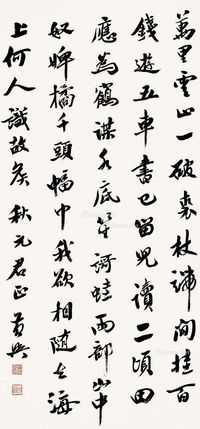 萬里雲山一破裘杖端閒挂百
錢遊五車書已留兒讀二頃田
應為鶴謀水底笙謌蛙兩部山中
奴婢橘千頭幅巾我欲相隨去海
上何人識故矦 秋元君正 黃興